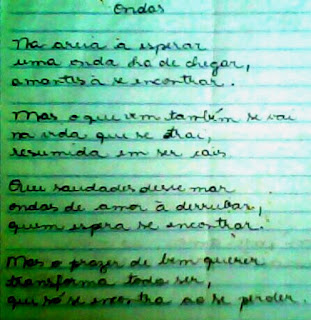 Ondas
Na areia à esperar
uma onda ha de chegar,
amantes à se encontrar.
Mas o que vem também se vai
na vida que se trai,
resumida em ser cais
Que saudades desse mar
ondas de amor à derrubar,
quem espera se encontrar.
Mas o prazer de bem querer
transforma todo ser,
que só se encontra ao se perder.